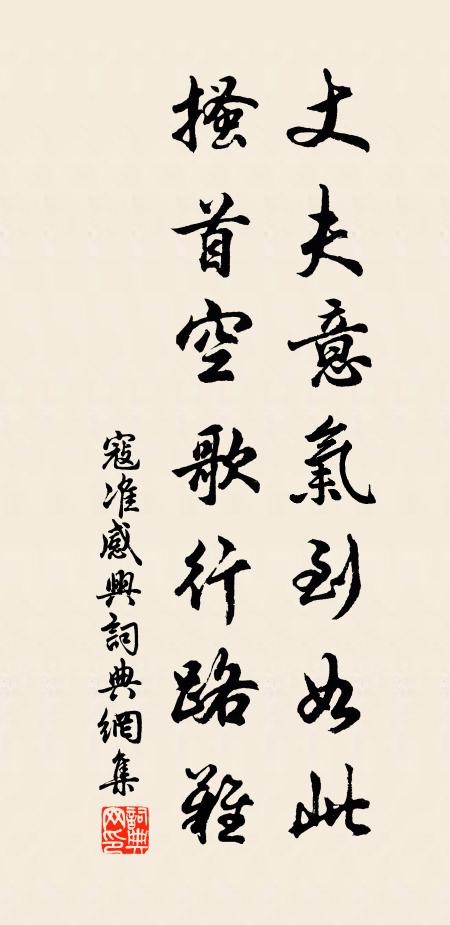 丈夫意氣到如此
搔首空歌行路難
寇准感興詞典網集
詞典网印